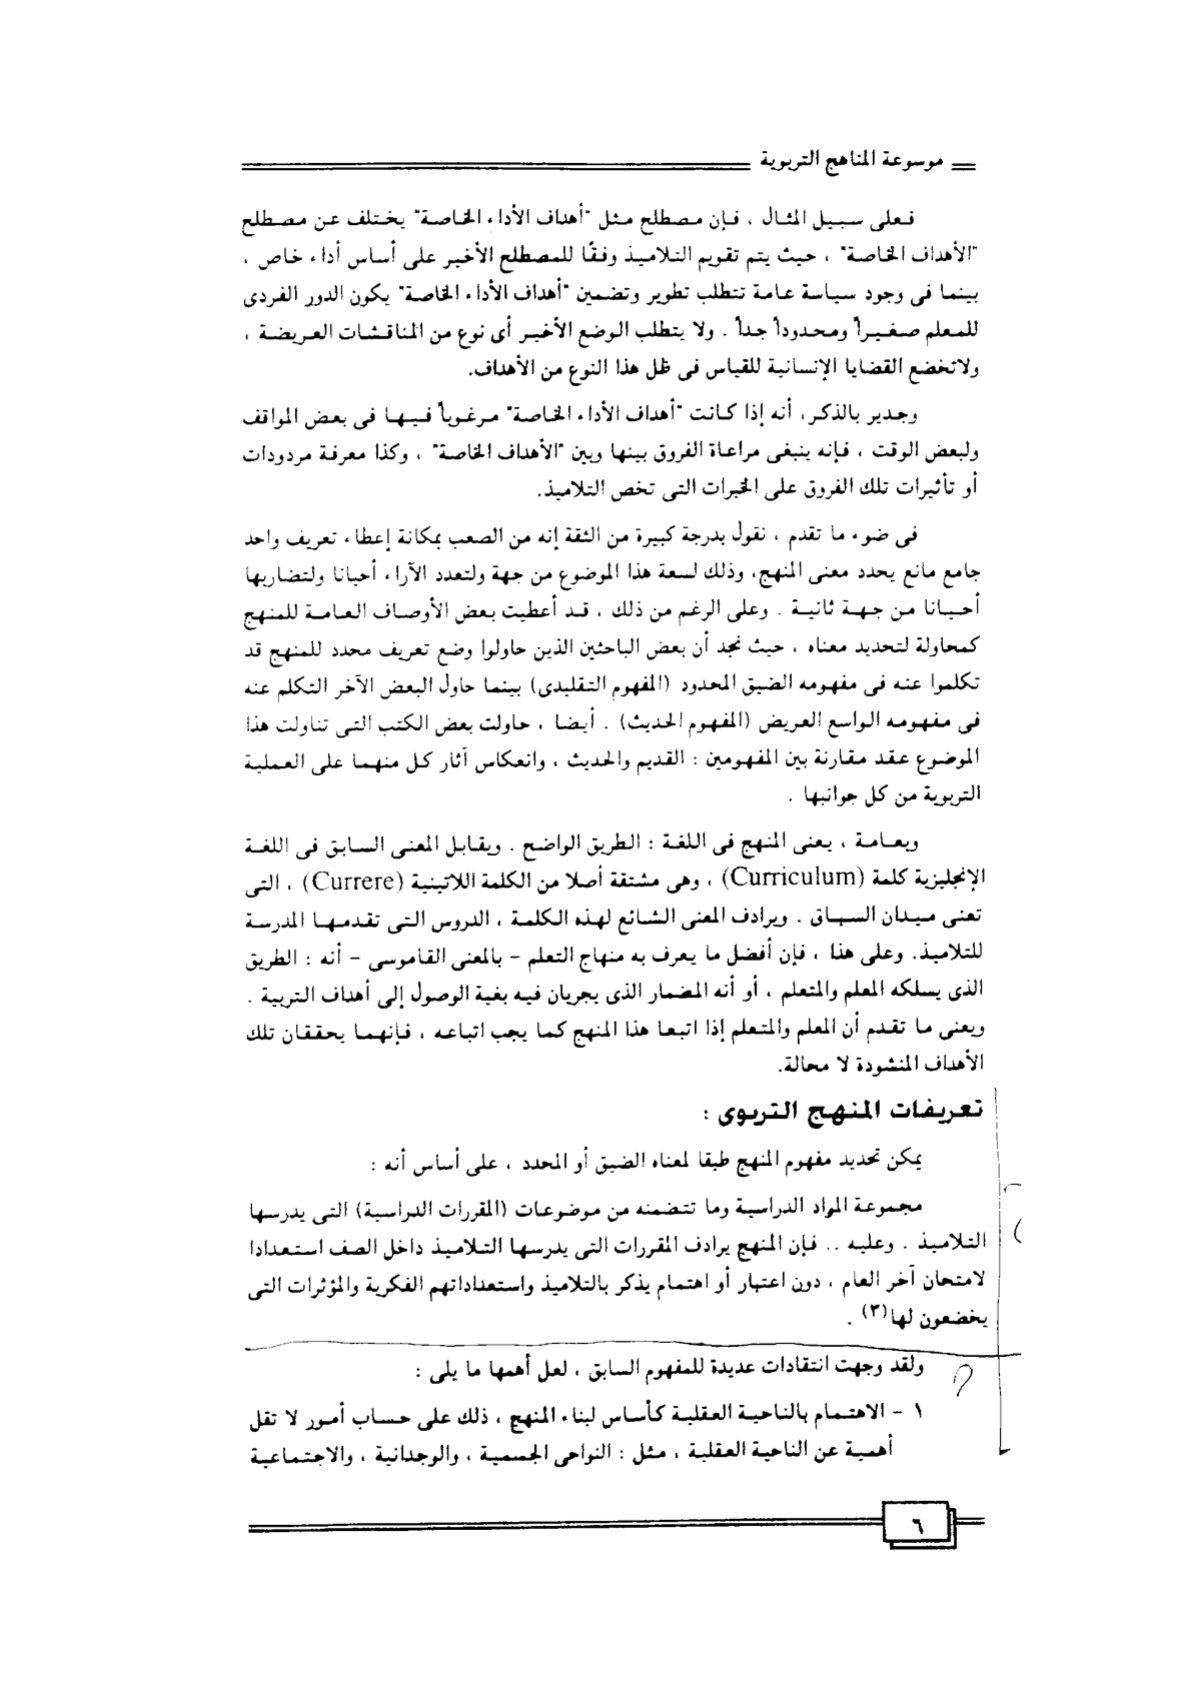 موسوعة المناهج التربوية
فعلى سبيل المثال ، فإن مصطلح مثل "أهداف الأداء الخاصة" يختلف عن مصطلح
"الأهداف الخاصة" ، حيث يتم تقويم التلاميذ وفقًا للمصطلح الأخير على أساس أداء خاص ،
بينما فى وجود سياسة عامة تتطلب تطوير وتضمين "أهداف الأداء الخاصة" يكون الدور الفردى
للمعلم صغيراً ومحدوداً جداً . ولا يتطلب الوضع الأخير أى نوع من المناقشات العريضة ،
ولاتخضع القضايا الإنسانية للقياس فى ظل هذا النوع من الأهداف.
وجدير بالذكر، أنه إذا كانت "أهداف الأداء الخاصة" مرغوباً فيها فى بعض المواقف
ولبعض الوقت ، فإنه ينبغى مراعاة الفروق بينها وبين "الأهداف الخاصة" ، وكذا معرفة مردودات
أو تأثيرات تلك الفروق على الخبرات التى تخص التلاميذ.
فى ضوء ما تقدم ، نقول بدرجة كبيرة من الثقة إنه من الصعب بمكانة إعطاء تعريف واحد
جامع مانع يحدد معنى المنهج، وذلك لسعة هذا الموضوع من جهة ولتعدد الآراء أحيانا ولتضاربها
أحيانا من جهة ثانية . وعلى الرغم من ذلك ، قد أعطيت بعض الأوصاف العامة للمنهج
كمحاولة لتحديد معناه ، حيث نجد أن بعض الباحثين الذين حاولوا وضع تعريف محدد للمنهج قد
تكلموا عنه فى مفهومه الضيق المحدود (المفهوم التقليدى) بينما حاول البعض الآخر التكلم عنه
فى مفهومه الواسع العريض (المفهوم الحديث) . أيضا ، حاولت بعض الكتب التى تناولت هذا
الموضوع عقد مقارنة بين المفهومين : القديم والحديث ، وانعكاس آثار كل منهما على العملية
التربوية من كل جوانبها .
وبعامة ، يعنى المنهج فى اللغة : الطريق الواضح . ويقابل المعنى السابق فى اللغة
الإنجليزية كلمة (Curriculum) ، وهى مشتقة أصلا من الكلمة اللاتينية (Currere) ، التى
تعنى ميدان السباق . ويرادف المعنى الشائع لهذه الكلمة ، الدروس التى تقدمها المدرسة
للتلاميذ. وعلى هذا ، فإن أفضل ما يعرف به منهاج التعلم - بالمعنى القاموسى - أنه : الطريق
الذى يسلكه المعلم والمتعلم ، أو أنه المضمار الذى يجريان فيه بغية الوصول إلى أهداف التربية .
ويعنى ما تقدم أن المعلم والمتعلم إذا اتبعا هذا المنهج كما يجب اتباعه ، فإنهما يحققان تلك
الأهداف المنشودة لا محالة.
تعريفات المنهج التربوى :
يمكن تحديد مفهوم المنهج طبقا لمعناه الضيق أو المحدد ، على أساس أنه :
مجموعة المواد الدراسية وما تتضمنه من موضوعات (المقررات الدراسية) التى يدرسها
التلاميذ . وعليه .. فإن المنهج يرادف المقررات التى يدرسها التلاميذ داخل الصف استعدادا
لامتحان آخر العام ، دون اعتبار أو اهتمام يذكر بالتلاميذ واستعداداتهم الفكرية والمؤثرات التى
يخضعون لها(٣) .
ولقد وجهت انتقادات عديدة للمفهوم السابق ، لعل أهمها ما يلى :
١ - الاهتمام بالناحية العقلية كأساس لبناء المنهج ، ذلك على حساب أمور لا تقل
أهمية عن الناحية العقلية ، مثل : النواحى الجسمية ، والوجدانية ، والاجتماعية
٦